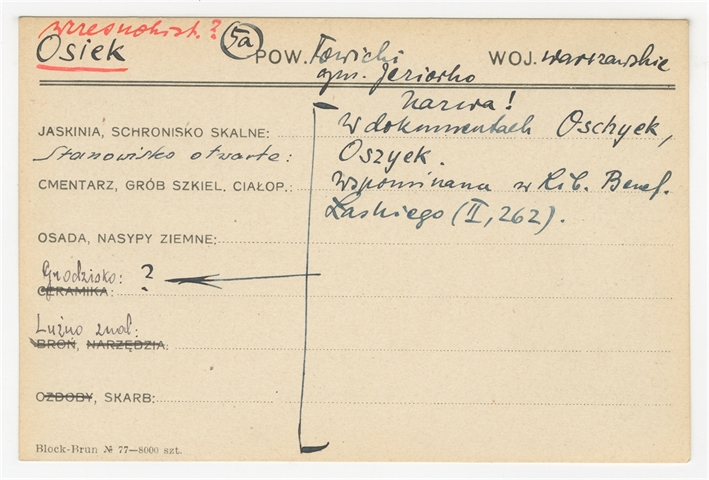 wczesnohist.?
Osiek (5a) POW. Łowicki WOJ. warszawskie
gm. Jeziorko
Nazwa!
JASKINIA, SCHRONISKO SKALNE: W dokumentach Oschyek,
Stanowisko otwarte: Oszyek.
CMENTARZ, GRÓB SZKIEL. CIAŁOP.: Wspominana w Lib. Benef.
Łaskiego (II, 262).
OSADA, NASYPY ZIEMNE:
Grodzisko: ?
CERAMIKA:
Luźno znal.:
BROŃ, NARZĘDZIA:
OZDOBY, SKARB:
Block-Brun № 77—8000 szt.